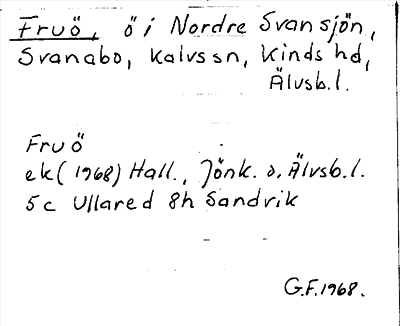 Fruö, ö i Nordre Svansjön,
Svanabo, Kalvs sn, Kinds hd,
Älvsb. l.
Fruö
ek (1968) Hall., Jönk. o. Älvsb. l.
5c Ullared 8h Sandvik
G.F. 1968.